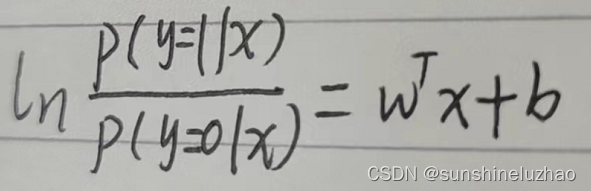 ln P(y=1|x) / P(y=0|x) = wᵀx+b
CSDN @sunshineluzhao